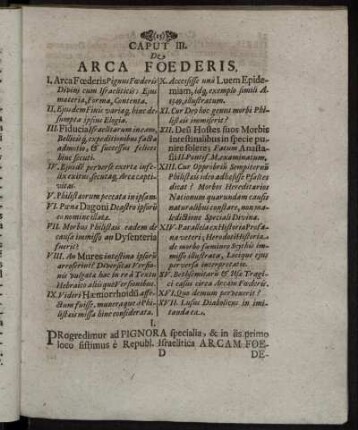 CAPUT III.
De
ARCA FOEDERIS.
I. Arca Fœderis Pignus Fœderis
Divini cum Israeliticis: Ejus
materia, Forma, Contenta.
II. Ejusdem Fines varii, hinc de-
sumpta ipsius Elogia.
III. Fiducia Israelitarum in eam,
Bellicis q; expeditionibus facta
admotio, & successus felices
hinc secuti.
IV. Ejusdem perversè exortæ infe-
lix exitus secutus, Arcæ capti-
vitas.
V. Philistæorum peccata in ipsam.
VI. Pœna Dagoni Deastro ipsorū
eo nomine illata.
VII. Morbus Philistæis eadem de
causa immissus an Dysenteria
fuerit?
VIII. An Mures intestina ipsorū
arroserint? Diversitas Versio-
nis Vulgatæ hac in re à Textu
Hebraico aliisque Versionibus.
IX. Videri Hæmorrhoidū affe-
ctum fuisse, muneraque à Phi-
listæis missa hinc considerata.
X. Accessisse unà Luem Epide-
miam, idq; exemplo simili
illustratum.
XI. Cur Deus hoc genus morbi Phi-
listæis immiserit?
XII. Dei Hostes suos Morbis
intestinalibus in specie puni-
re solere; Fatum Anasta-
sii II. Pontif. Mænaminatum,
XIII. Cur Opprobrio Sempiterno
Philistæis ideo adfecisse Psaltes
dicat? Morbos Hereditarios
Nationum quarundam causis
naturalibus constare, non ma-
ledictione Speciali Divina.
XIV. Parallela ex Historia Profa-
na veteri; Herodoti Historia
de morbo fœmineo Scythis im-
misso illustrata, Locusque ejus
perversa interpretatum.
XV. Bethsimitarū & Usæ Tragi-
ci casus circa Arcam Fœderis.
XVI. Quo demum pervenerit?
XVII. Lusus Diabolicus in imi-
tanda ea.
I.
PRogredimur ad PIGNORA specialia, & in iis primo
loco sistimus è Republ. Israelitica ARCAM FOE-
D
DE-